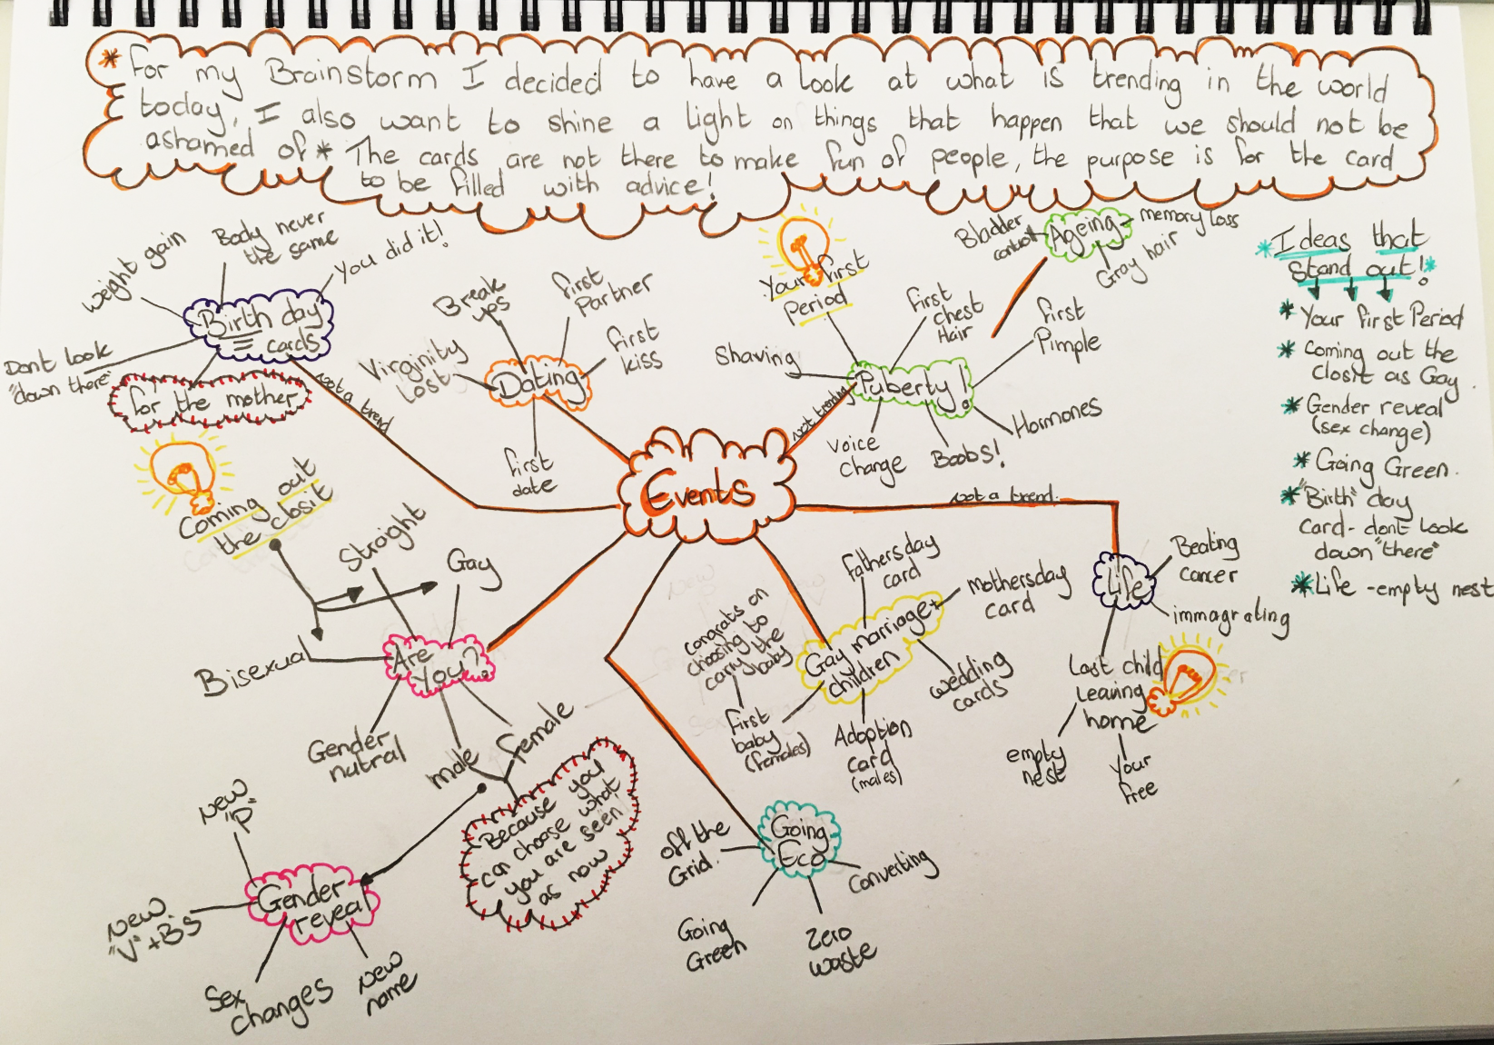 * For my Brainstorm I decided to have a look at what is trending in the world
today, I also want to shine a light on things that happen that we should not be
ashamed of * The cards are not there to make fun of people, the purpose is for the card
to be filled with advice!
weight gain
Body never
the same
You did it!
Birth day
cards
Dont look
"down there"
for the mother
not a trend
Break
ups
first
Partner
first
kiss
Virginity
Lost
Dating
first
date
Your first
Period
first
chest
Hair
first
Pimple
Shaving
Puberty!
not trendy
voice
change
Boobs!
Hormones
Bladder
control
Ageing
memory loss
Gray hair
* Ideas that
stand out! *
* Your first Period
* Coming out the
closit as Gay.
* Gender reveal
(sex change)
* Going Green.
* "Birth" day
card - dont look
down "there"
* Life - empty nest
Events
not a trend
Coming out
the closit
Straight
Gay
Bisexual
Are
You?
Gender
nutral
male
female
Because you
can choose what
you are seen
as now
New
"P"
New
"V" + B's
Gender
reveal
Sex
changes
New
name
fathersday
card
mothersday
card
congrats on
choosing to
carry the
baby
Gay marriage +
children
first
baby
(females)
Adoption
card
(males)
wedding
cards
Life
Beating
cancer
immagrating
Last child
leaving
home
empty
nest
Your
free
Going
Eco
off the
Grid.
Going
Green
Zero
waste
Converting